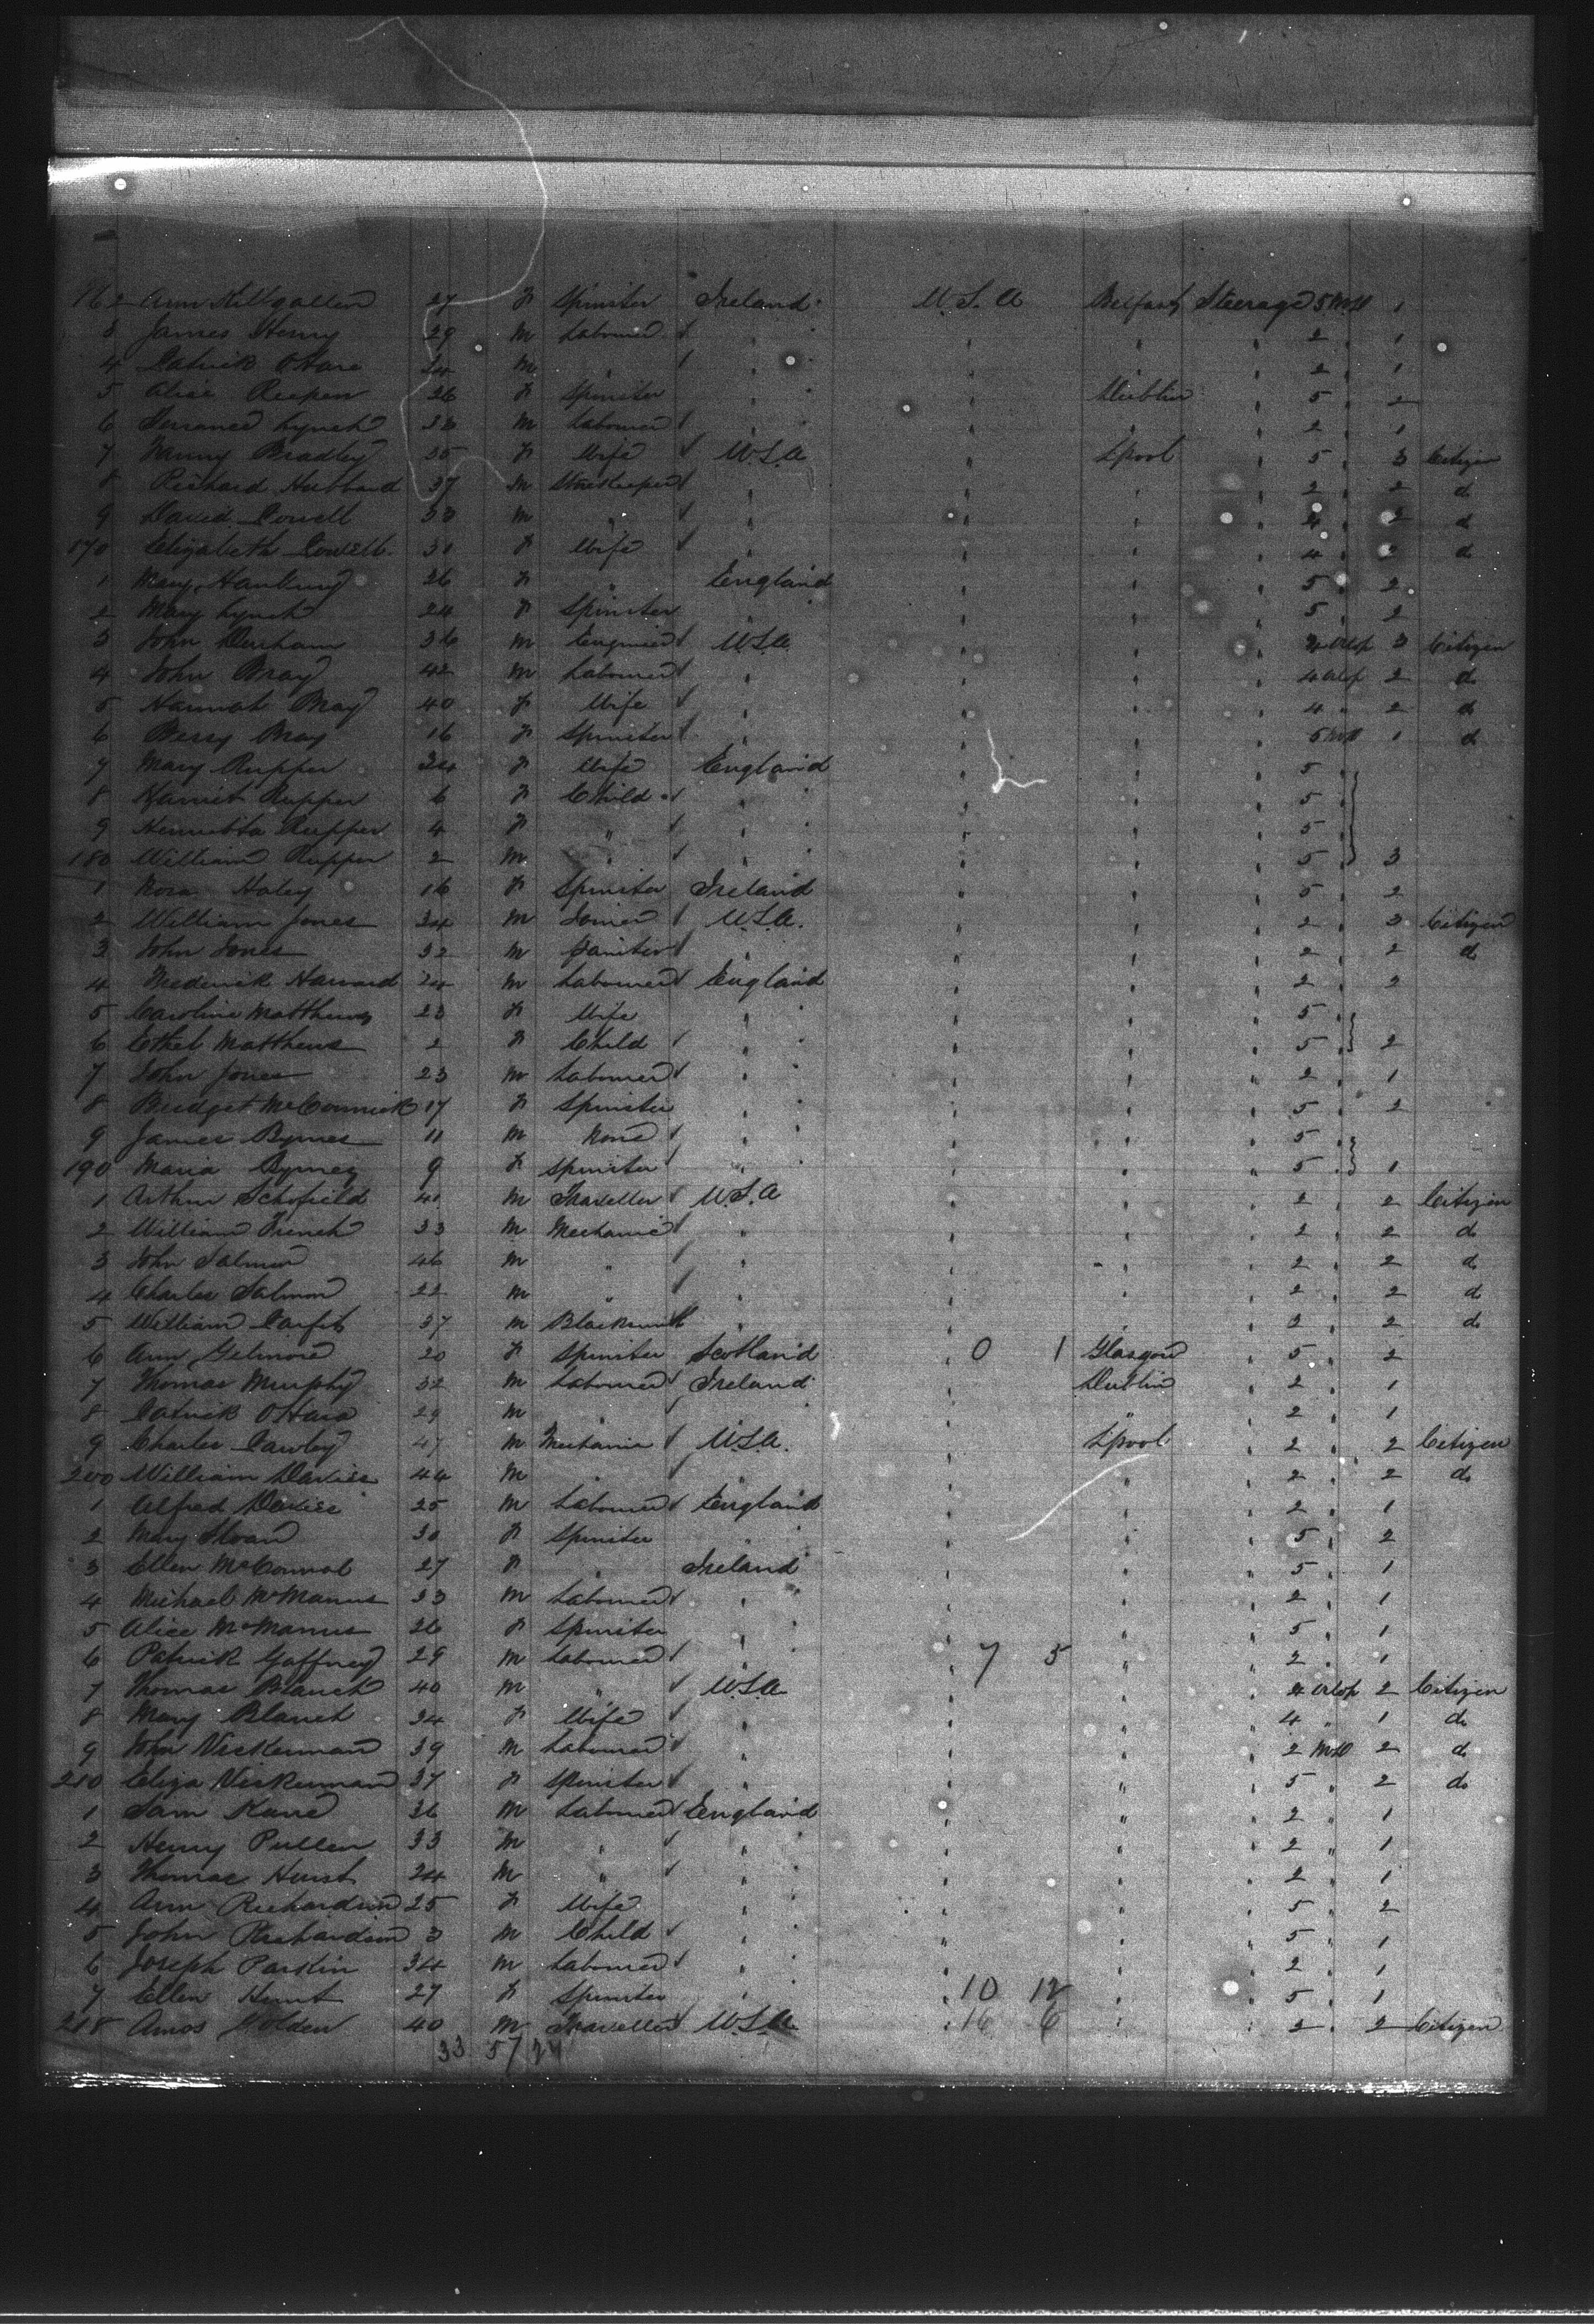 162 Ann Killgallen 27 F Spinster Ireland U.S.A Belfast Steerage 5 1
3 James Henry 29 M Labourer " " " 2 " 1
4 Patrick O'Hare 24 M " " " " 2 " 1
5 Alice 26 F Spinster " " Dublin " 5 " 2
6 Lynch M Labourer " " " " 2 " 1
7 Fanny Bradley 35 F Wife U.S.A " L'pool " 5 " 3 Citizen
8 Richard Hubbard 37 M Storekeeper " " " " 2 " 2 do
9 David M " " " " " " 2 do
170 Elizabeth 31 F Wife " " " " 4 " " do
1 Mary Hanbury 26 F " England " " " 5 " 2
2 Mary Lynch 24 F Spinster " " " " 5 " 2
3 John Durham 36 M Engineer U.S.A " " " Citizen
4 John Bray 42 M Labourer " " " " 4 2 do
5 Hannah Bray 40 F Wife " " " " 4 " 2 do
6 Bray 16 F Spinster " " " " 5 1 do
7 Mary Rupper 34 F Wife England " " " 5
8 Harriet Rupper 6 F Child " " " " 5
9 Henrietta Rupper 4 F " " " " " 5
180 William Rupper 2 M " " " " " 5 3
1 Nora Haley 16 F Spinster Ireland " " " 5 " 2
2 William Jones 34 M Joiner U.S.A. " " " 2 " 3 Citizen
3 John Jones 32 M " " " " 2 " 2 do
4 Frederick 24 M Labourer England " " " 2 " 2
5 Caroline Matthews 23 F Wife " " " " 5 "
6 Ethel Matthews 2 F Child " " " " 5 " 2
7 John Jones 23 M Labourer " " " " 2 " 1
8 Bridget McCormick 17 F Spinster " " " " 5 " 2
9 James Byrnes 11 M None " " " " 5 "
190 Maria 9 F Spinster " " " " 5 " 1
1 Arthur Schofield 41 M Traveller U.S.A " " " 2 " 2 Citizen
2 William French 33 M Mechanic " " " " 2 " 2 do
3 John Salmon 46 M " " " " " 2 " 2 do
4 Charles Salmon 22 M " " " " " 2 " 2 do
5 William 37 M Blacksmith " " " " 2 " 2 do
6 Ann Gilmore 20 F Spinster Scotland " 0 1 Glasgow " 5 " 2
7 Thomas Murphy 32 M Labourer Ireland " Dublin " 2 " 1
8 Patrick O'Hara 29 M " " " " " 2 " 1
9 Charles Cawley 47 M Mechanic U.S.A. " L'pool " 2 " 2 Citizen
200 William Davies 44 M " " " " " 2 " 2 do
1 Alfred Davies 25 M Labourer England " " " 2 " 1
2 Mary Sloan 30 F Spinster " " " " 5 " 2
3 Ellen 27 F " Ireland " " " 5 " 1
4 Michael McManus 33 M Labourer " " " " 2 " 1
5 Alice McManus 26 F Spinster " " " " 5 " 1
6 Patrick Gaffney 29 M Labourer " " 7 5 " " 2 " 1
7 Thomas Blanch 40 M " U.S.A " " " 2 Citizen
8 Mary Blanch 34 F Wife " " " " 4 " 1 do
9 John Vickerman 39 M Labourer " " " " 2 2 do
210 Eliza Vickerman 37 F Spinster " " " " 5 " 2 do
1 Sam Kane 36 M Labourer England " " " 2 " 1
2 Henry Pullen 33 M " " " " " 2 " 1
3 Thomas Hurst 24 M " " " " " 2 " 1
4 Ann Richardson 25 F Wife " " " " 5 " 2
5 John Richardson 3 M Child " " " " 5 " 1
6 Joseph Parkin 34 M Labourer " " " " 2 " 1
7 Ellen Hunt 27 F Spinster " " 10 12 " " 5 " 1
218 Amos Holden 40 M Traveller U.S.A " 16 6 " " 2 " 2 Citizen
33 57 24